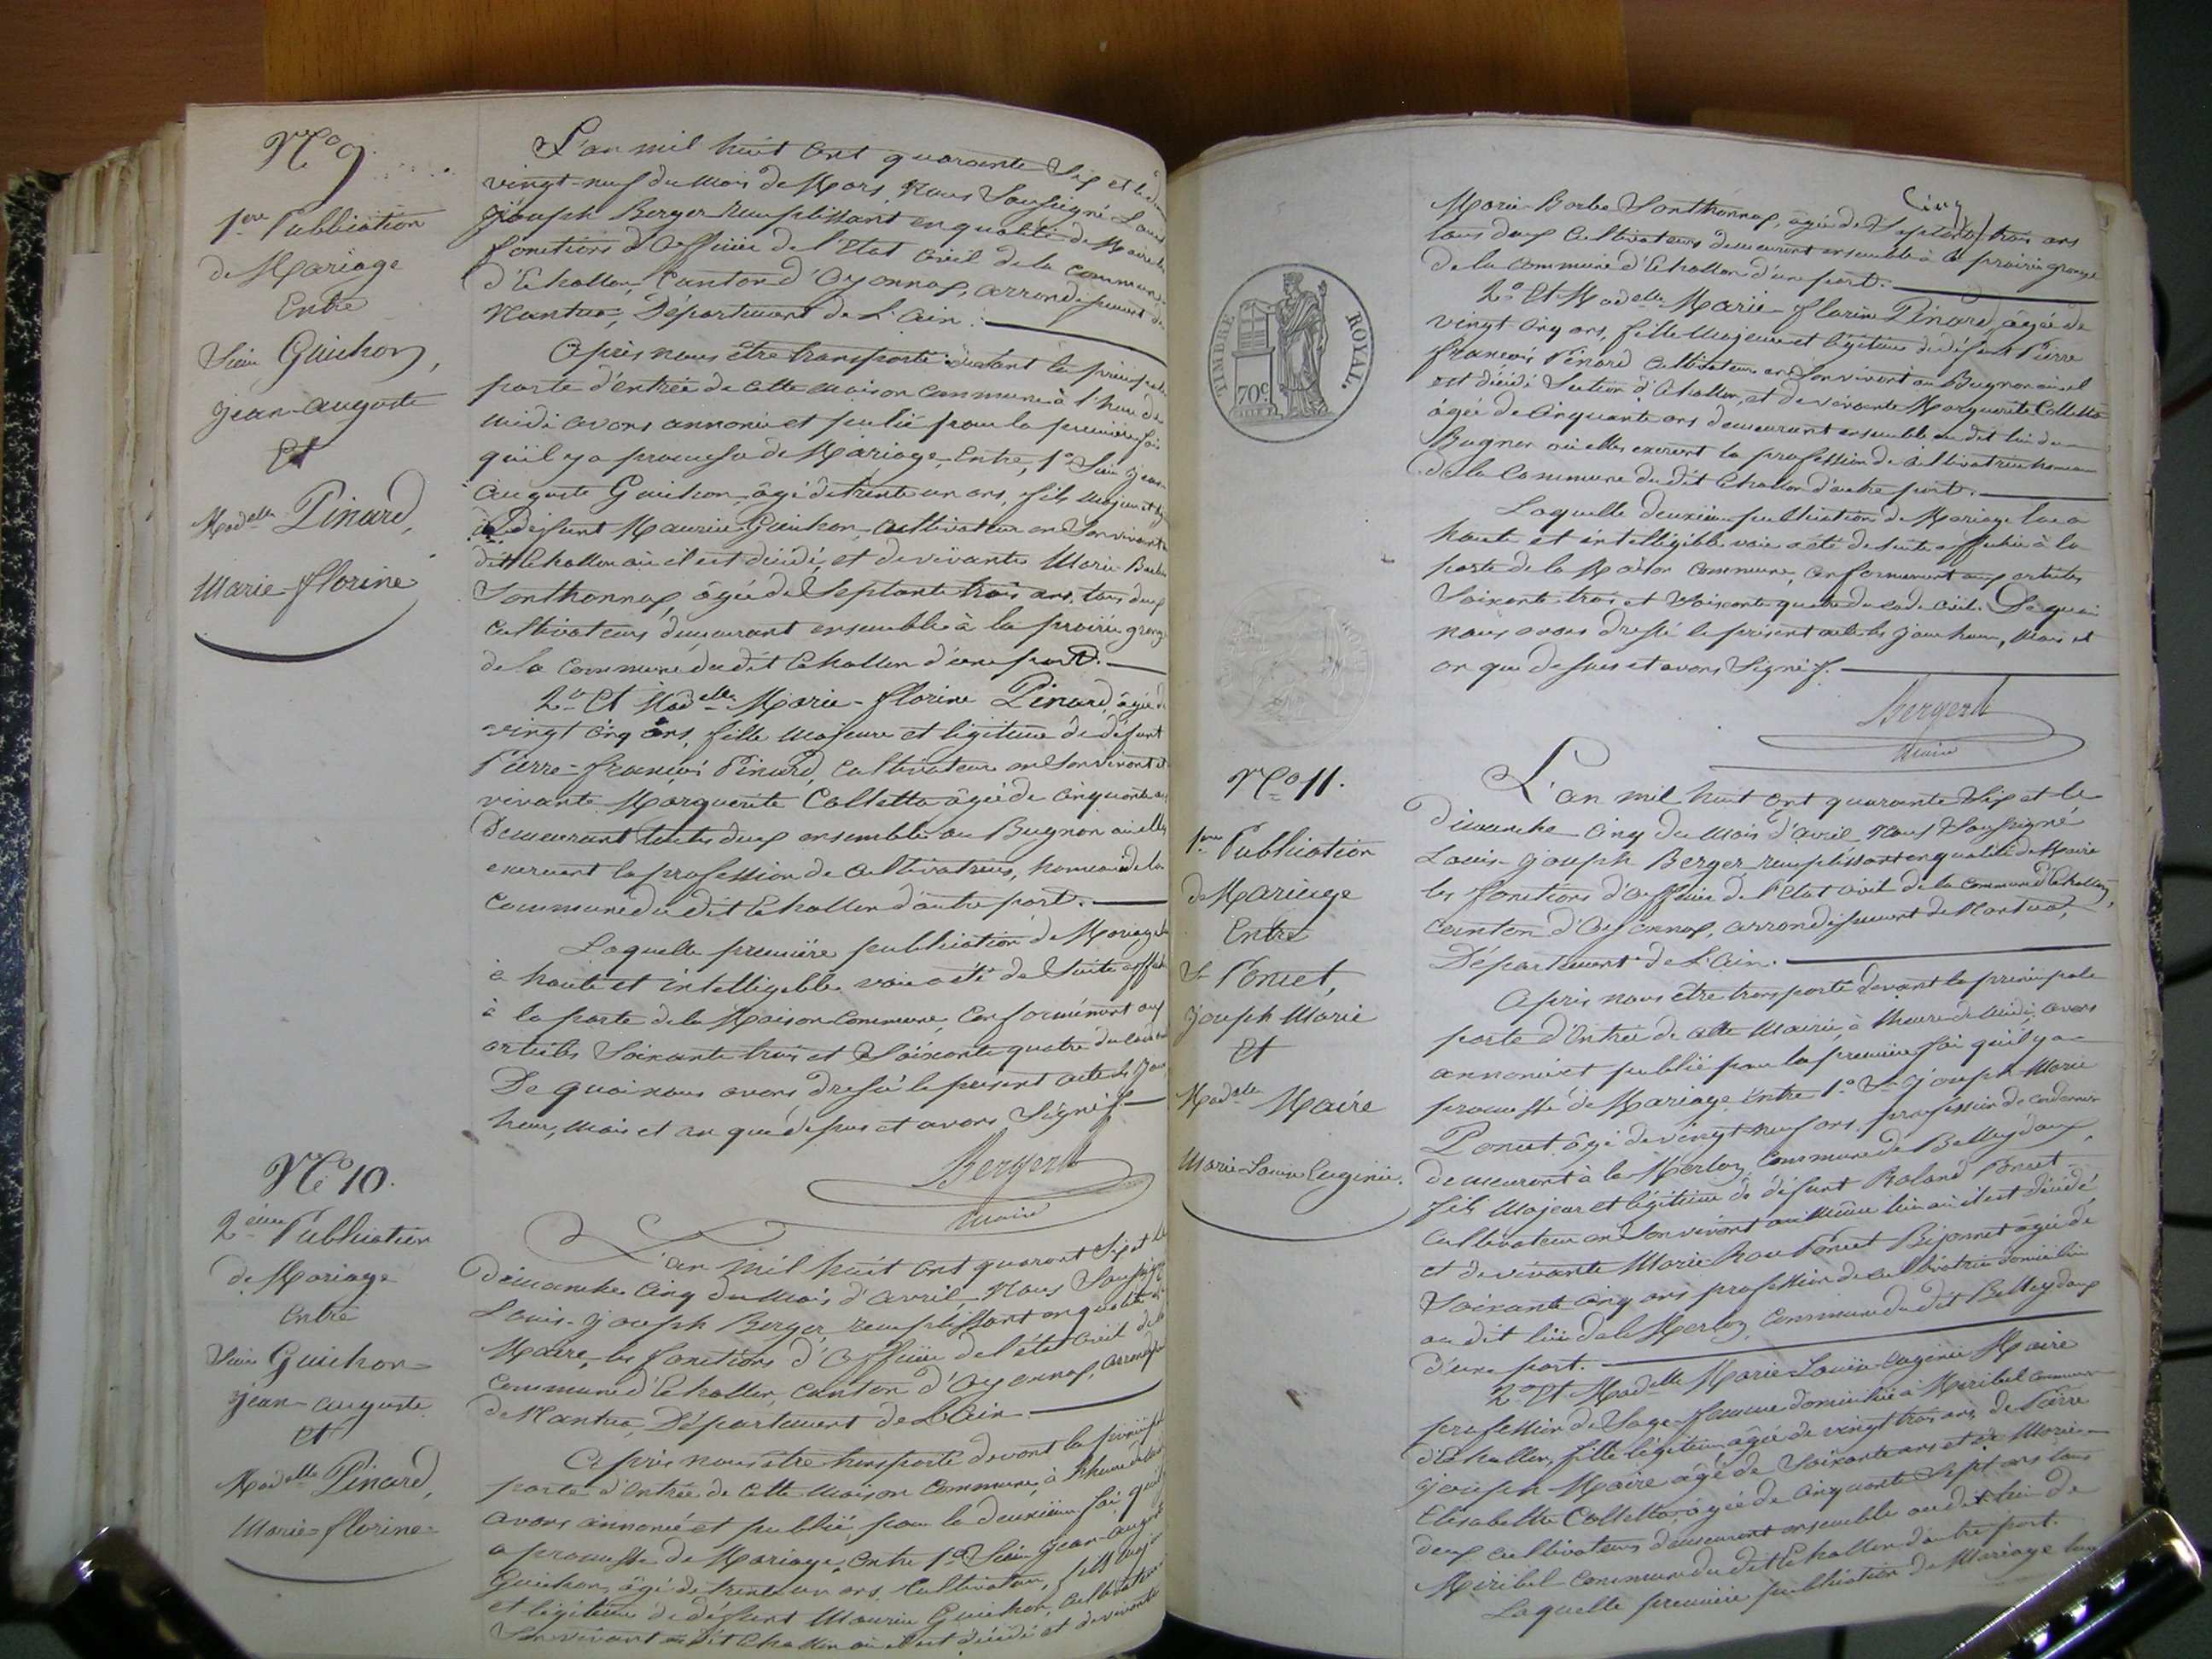 N° 9.
1ère Publication
de Mariage
Entre
Sieur Guichon,
jean-auguste
Et
Madelle Pinard,
Marie-florine
L'an mil huit cent quarante Six et le
vingt-neuf du mois de Mars, Nous Soussigné Louis
joseph Berger remplissant en qualité de Maire les
fonctions d'officier de l'Etat Civil de la commune
d'Echallon, Canton d'Oyonnax, arrondissement de
Nantua, Département de L'Ain.
Après nous être transporté devant la principale
porte d'entrée de cette maison commune à l'heure de
midi avons annoncé et publié pour la première fois
qu'il y a promesse de Mariage, Entre, 1° Sieur jean
auguste Guichon, âgé de trente un ans, fils majeur et
défunt Maurice Guichon, Cultivateur en Son vivant
dit Echallon où il est décédé, et de vivante Marie Barbe
Sonthonnax, âgée de Septante trois ans, tous deux
cultivateurs demeurant ensemble à la prairie grange
de la commune du dit Echallon d'une part.
2° Et Madelle Marie-florine Pinard, âgée de
vingt cinq ans, fille majeure et légitime de défunt
Pierre-françois Pinard, cultivateur en Son vivant et
vivante Marguerite Colletta âgée de cinquante ans
Demeurant toutes deux ensemble au Bugnon où elles
exercent la profession de cultivatrices, hameau de la
commune du dit Echallon d'autre part.
Laquelle première publication de Mariage
à haute et intelligible voix a été de Suite affichée
à la porte de la Maison Commune, Conformément aux
articles Soixante trois et Soixante quatre du code
De quoi nous avons dressé le présent acte les jour
heure, mois et an que dessus et avons Signé.
Berger
Maire
N° 10.
2ème Publication
de Mariage
Entre
Sieur Guichon
jean-auguste
Et
Madelle Pinard,
Marie-florine
L'an mil huit cent quarante Six et le
dimanche Cinq du Mois d'avril, Nous Soussigné
Louis-joseph Berger remplissant en qualité de
Maire, les fonctions d'officier de l'état Civil de la
commune d'Echallon, canton d'Oyonnax, arrond.
de Nantua, Département de L'Ain.
Après nous être transporté devant la principale
porte d'entrée de cette Maison Commune, à l'heure de
avons annoncé et publié, pour la deuxième fois qu'il
a promesse de Mariage, Entre 1° Sieur jean-auguste
Guichon, âgé de trente un ans, Cultivateur, fils majeur
et légitime de défunt Maurice Guichon, Cultivateur
Son vivant au dit Echallon où il est décédé et de vivante
Marie-Barbe Sonthonnax, âgée de Septante trois ans
Cinq
tous deux Cultivateurs demeurant ensemble à la prairie grange
de la Commune d'Echallon d'une part.
2° Et Madelle Marie-florine Pinard, âgée de
vingt cinq ans, fille Majeure et légitime de défunt Pierre
françois Pinard Cultivateur en Son vivant au Bugnon où il
est décédé Section d'Echallon, et de vivante Marguerite Colletta
âgée de Cinquante ans demeurant ensemble au dit lieu du
Bugnon où elles exercent la profession de cultivatrices hameau
de la Commune du dit Echallon d'autre part.
Laquelle deuxième publication de Mariage lue à
haute et intelligible voix a été de suite affichée à la
porte de la Maison Commune, Conformément aux articles
Soixante-trois et Soixante quatre du code Civil. De quoi
nous avons dressé le présent acte les jour heure, Mois et
an que dessus et avons Signé.
Berger
Maire
TIMBRE ROYAL.
70c
N° 11.
1ère Publication
de Mariage
Entre
Sr Poncet,
joseph Marie
Et
Madelle Maire
Marie Louise Eugénie.
L'an mil huit cent quarante Six et le
dimanche cinq du Mois d'avril, Nous Soussigné
Louis-joseph Berger remplissant en qualité de Maire
les fonctions d'officier de l'Etat civil de la commune d'Echallon,
Canton d'Oyonnax, arrondissement de Nantua,
Département de L'Ain.
Après nous être transporté devant la principale
porte d'Entrée de cette Mairie, à l'heure de midi, avons
annoncé et publié pour la première fois qu'il y a
promesse de Mariage Entre 1° Sr joseph-Marie
Poncet âgé de vingt-neuf ans, profession de cordonnier
demeurant à la Merloz, Commune de Belleydoux,
fils Majeur et légitime de défunt Roland Poncet
Cultivateur en Son vivant au même lieu où il est décédé,
et de vivante Marie Poncet âgée de
Soixante cinq ans profession de cultivatrice domiciliée
au dit lieu de la Merloz, Commune du dit Belleydoux
d'une part.
2° Et Madelle Marie-Louise-Eugénie Maire
profession de Sage-femme domiciliée à Miribel commune
d'Echallon, fille légitime âgée de vingt trois ans, de Pierre
joseph Maire âgé de Soixante ans et de Marie
Elisabette Colletta, âgée de Cinquante Sept ans tous
deux cultivateurs demeurant ensemble au dit lieu de
Miribel commune du dit Echallon d'autre part.
Laquelle première publication de Mariage lue